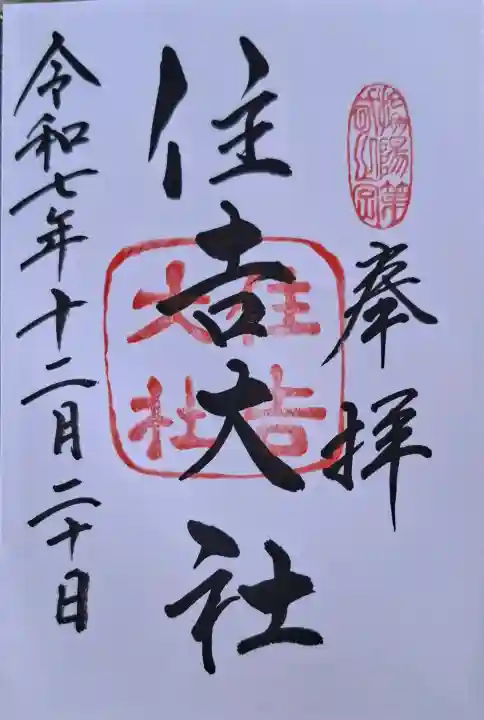 奉拝
住吉大社
住吉
大社
令和七年十二月二十日